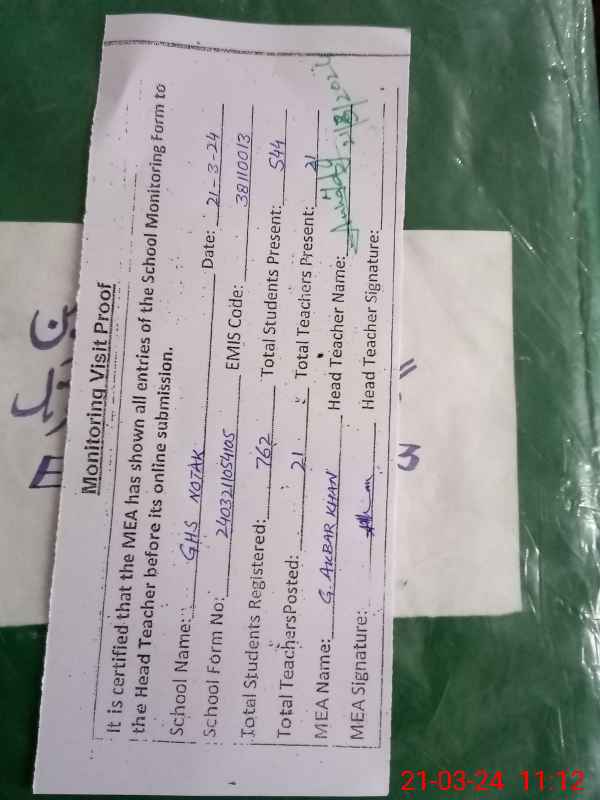 Monitoring Visit Proof
It is certified that the MEA has shown all entries of the School Monitoring Form to
the Head Teacher before its online submission.
School Name: GHS NOTAK Date: 21-3-24
School Form No: 2403211054105 EMIS Code: 38110013
Total Students Registered: 762 Total Students Present: 544
Total TeachersPosted: 21 Total Teachers Present: 21
MEA Name: G. AKBAR KHAN Head Teacher Name: 21/3/2024
MEA Signature: Head Teacher Signature:
21-03-24 11:12